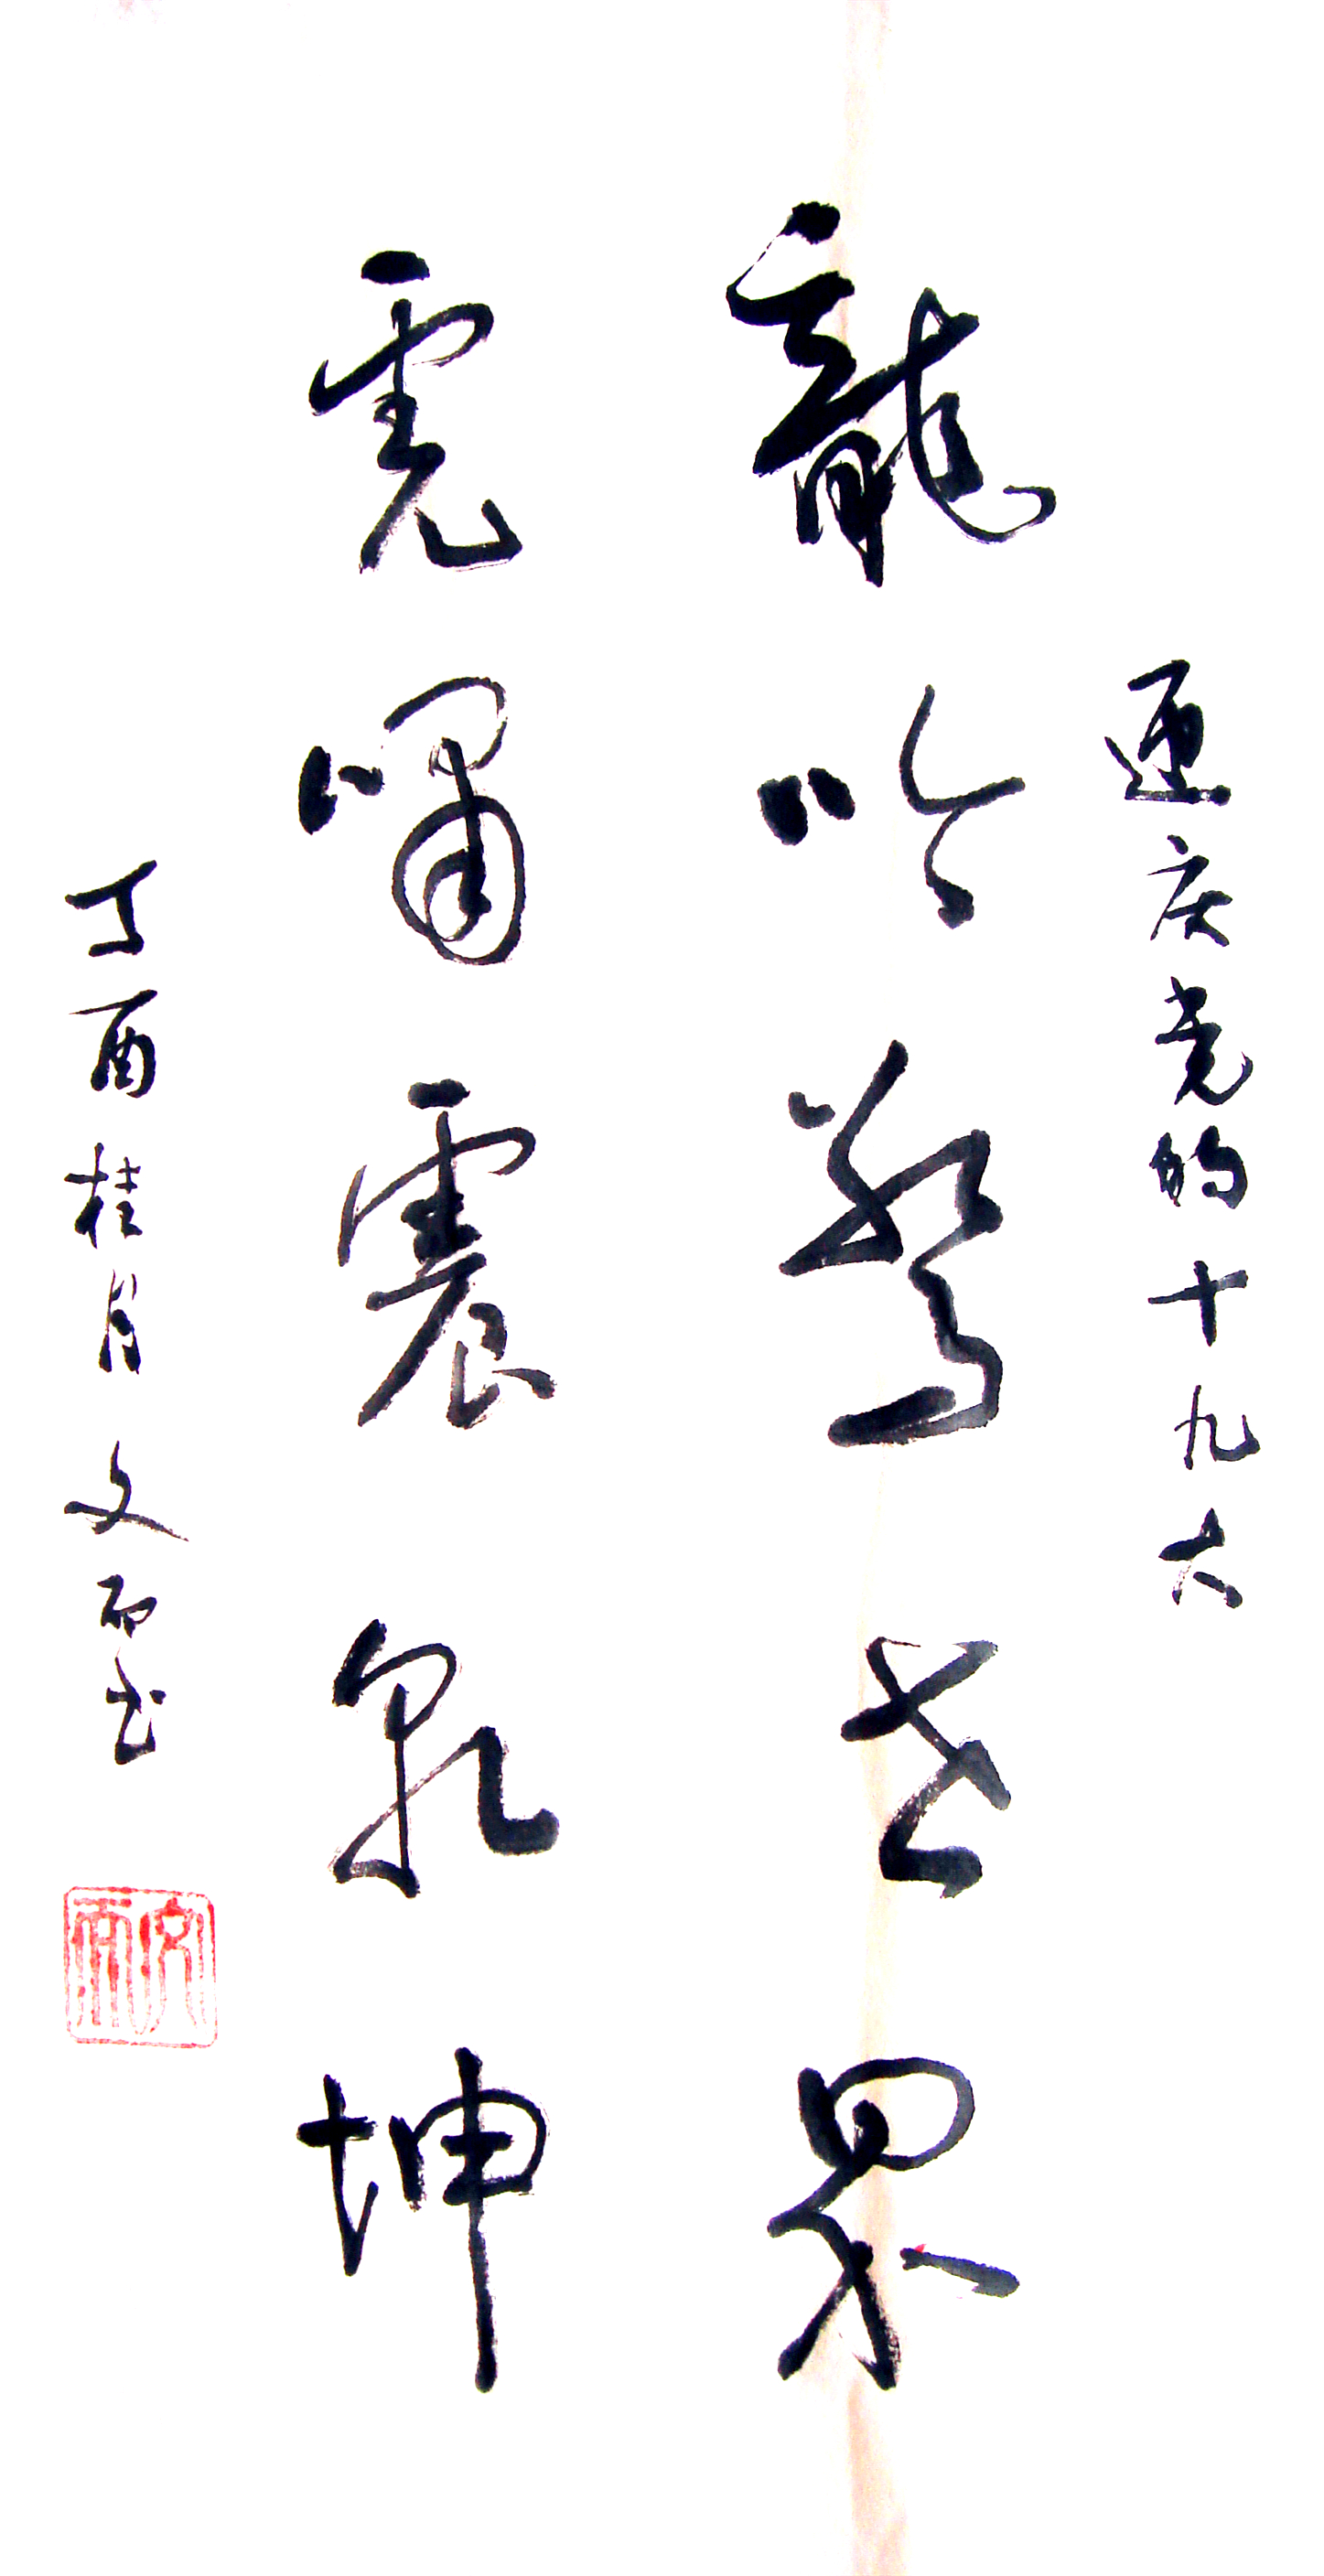 迎庆党的十九大
龍吟驚世界
虎嘯震乾坤
丁酉桂月文而书